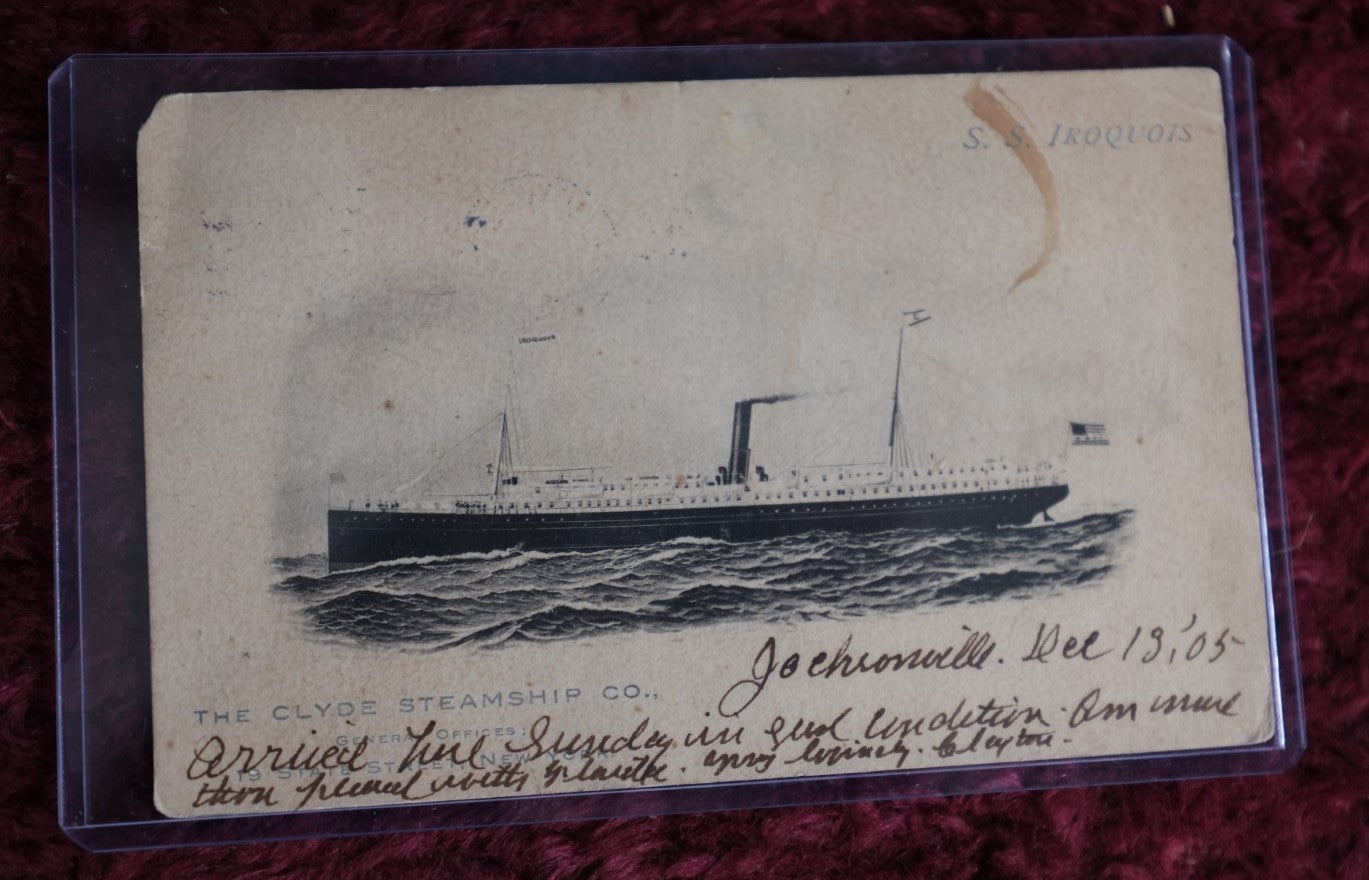 S. S. IROQUOIS
IROQUOIS
THE CLYDE STEAMSHIP CO.,
GENERAL OFFICES:
19 STATE STREET, NEW YORK
Jacksonville. Dec 13,'05
Arrived here Sunday in good condition. Am more
than pleased with